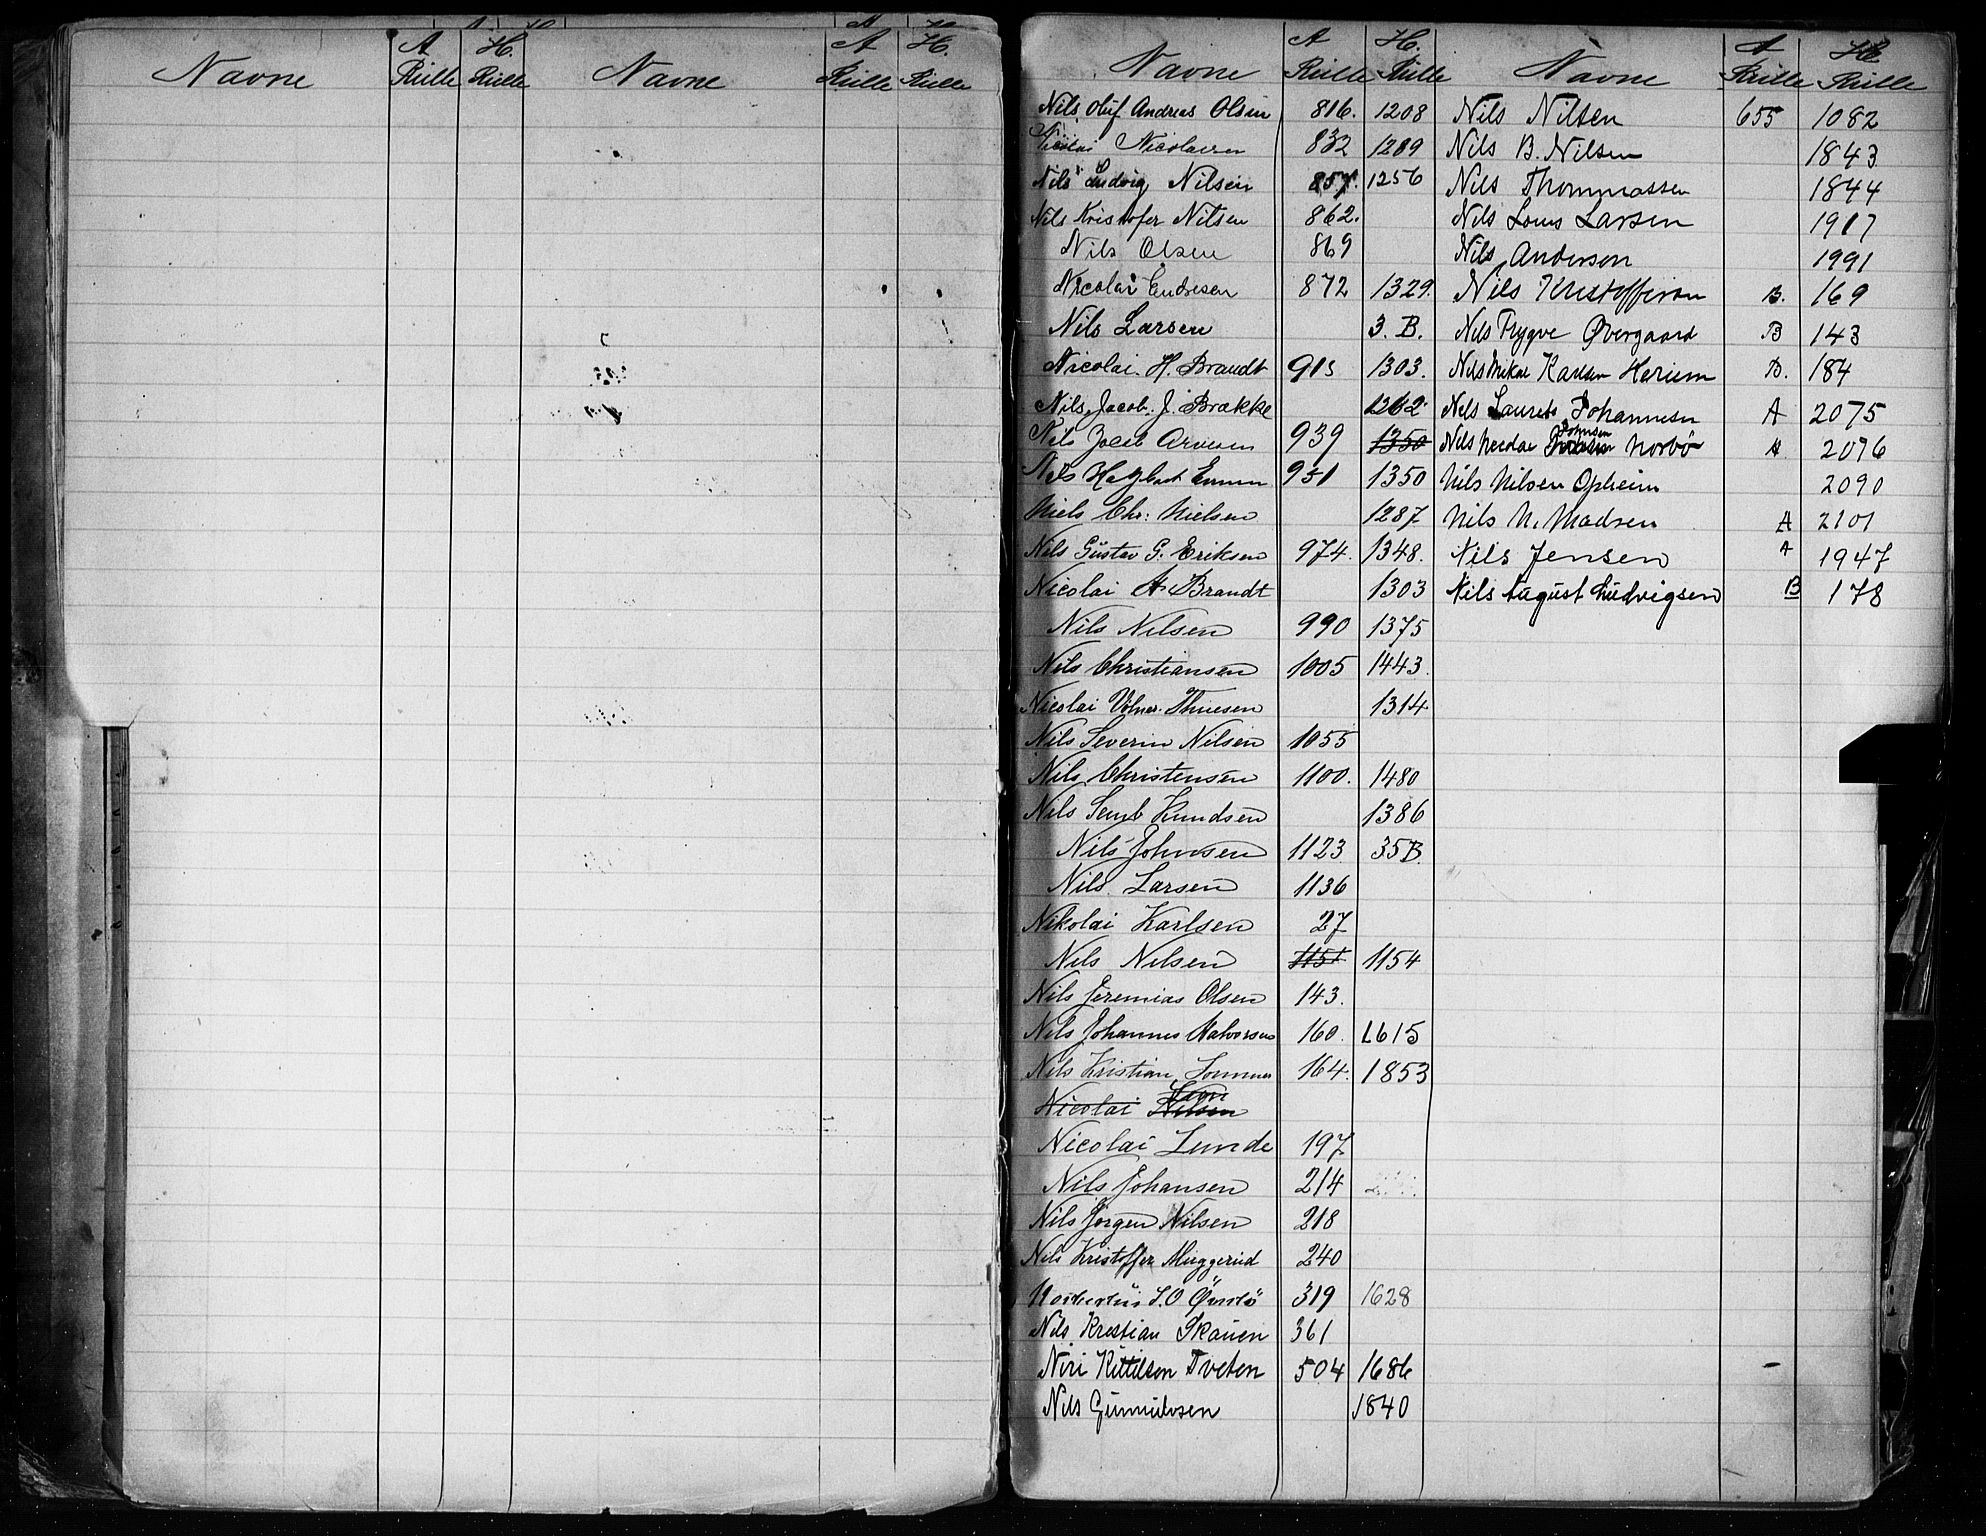 Navne A Rulle H. Rulle Navne A Rulle H. Rulle
Navne A Rulle H. Rulle Navne A Rulle H Rulle
Nils Oluf Andreas Olsen 816. 1208
Nicolai Nicolaisen 832 1289
Nils Ludvig Nilsen 857. 1256
Nils Kristofer Nilsen 862.
Nils Olsen 869
Nicolai Endresen 872 1329.
Nils Larsen 3. B.
Nicolai. H. Brandt 915 1303.
Nils, Jacob. J. Brække 1262.
Nils 939 1350
Nils 951 1350
Niels Chr: Nielsen 1287
Nils Gustav G. Eriksen 974. 1348.
Nicolai A Brandt 1303
Nils Nilsen 990 1375
Nils Christiansen 1005 1443
Nicolai Volmer Thuesen 1314
Nils Severin Nilsen 1055
Nils Christensen 1100. 1480
Nils Semb Knudsen 1386
Nils Johnsen 1123 35B
Nils Larsen 1136
Nikolai Karlsen 27
Nils Nilsen 1151 1154
Nils Jeremias Olsen 143.
Nils Johannes Halvorsen 160. 1615
Nils Kristian Sommer 164. 1853
Nicolai Nilsen
Nicolai Lunde 197
Nils Johansen 214
Nils Jörgen Nilsen 218
Nils Kristoffer Muggerud 240
S.O 319 1628
Nils Kristian Skauen 361
Niri Kittilson Tveten 504 1686
Nils Gunnulvsen 1840
Nils Nilsen 655 1082
Nils B. Nilsen 1843
Nils Thommassen 1844
Nils Louis Larsen 1917
Nils Anderson 1991
Nils Kristofferson B. 169
Nils Trygve Øvergaard B 143
Nils Mikal Karlsen Herium B. 184
Nils Laurets Johannesen A 2075
Nils Nicolai Johnsen Norbö A 2076
Nils Nilsen Opheim 2090
Nils N. Madsen A 2101
Nils Jensen A 1947
Nils August Ludvigsen B 178